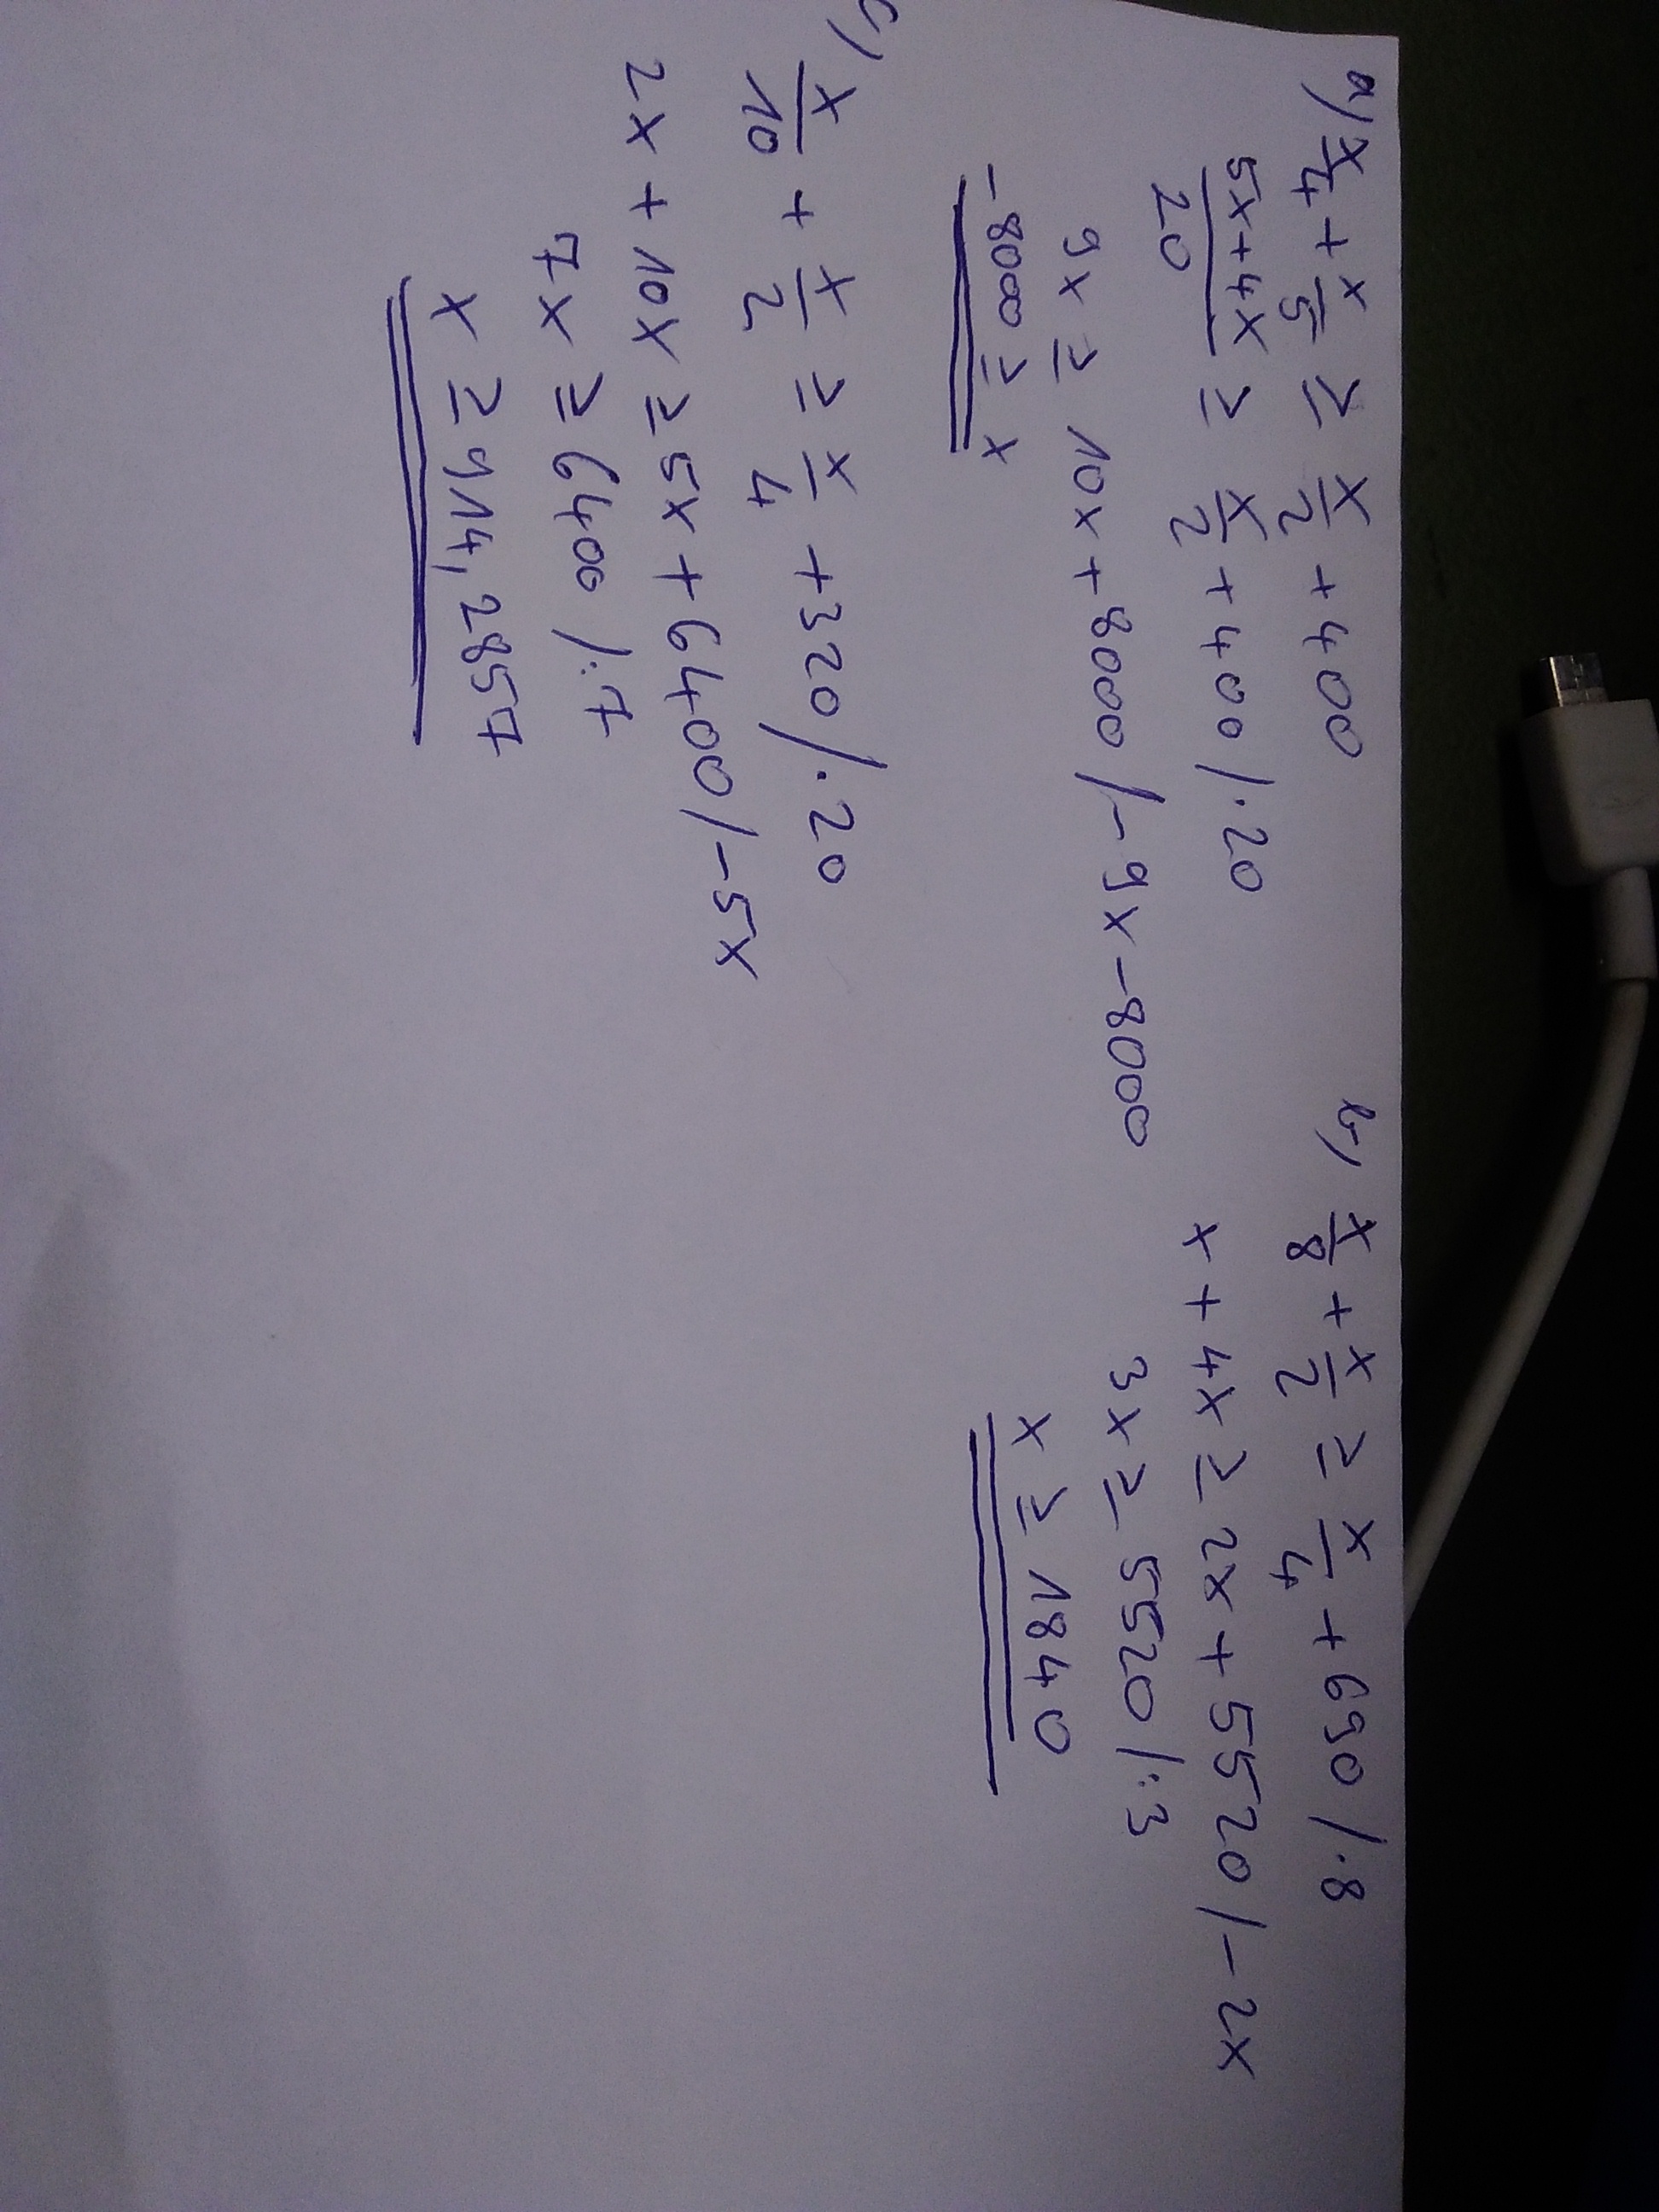 a) x/4 + x/5 ≥ x/2 + 400
(5x+4x)/20 ≥ x/2 + 400 /·20
9x ≥ 10x + 8000 /-9x-8000
-8000 ≥ x
b) x/8 + x/2 ≥ x/4 + 690 /·8
x + 4x ≥ 2x + 5520 /-2x
3x ≥ 5520 /:3
x ≥ 1840
c) x/10 + x/2 ≥ x/4 + 320 /·20
2x + 10x ≥ 5x + 6400 /-5x
7x ≥ 6400 /:7
x ≥ 914,2857